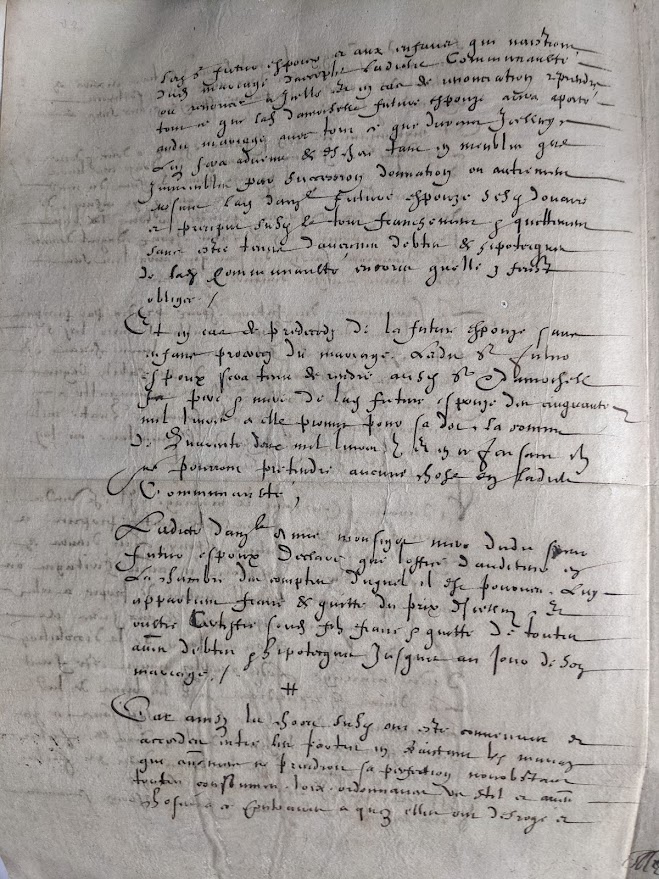 futur espoux et aux enfans qui naistront
dud mariage d'accepter ladicte Communaulté
ou renoncer a Icelle et en cas de renonciation reprendre
tout ce que lad damoiselle future espouze aura aporté
aud mariage avec tout ce que durant Icelluy
luy sera advenu & escheu tant en meubles que
Immeubles par succession donnation ou autrement
lad dam^lle future espouze sesd douaire
et preciput le tout franchement & quittement
sans estre tenue d'aucunes debtes & hipotecques
de lad Communaulté, encores quelle y feust
obligée /
Et en cas de predecedz de la future espouze sans
enfans procreez du mariage. Ledit s^r futur
espoux sera tenu de rendre ausd s^r & damoiselle
ses pere & mere de lad future espouze des cinquante
mil livres a elle promis pour sa dot, la somme
de Quarente deux mil livres & en ce faisant ilz
ne pourront pretendre aucune chose en ladicte
Communaulté,
Ladicte dam^lle mere dudit sieur
futur espoux declare que l'office d'auditeur en
la chambre des comptes duquel il est pourveu, luy
appartient franc & quitte du prix d'icelluy, Et
oultre Certiffie sond filz franc & quitte de toutes
autres debtes & hipotecques Jusques au jour de son
mariage. /
#
Car ainsy les choses susd ont esté convenues et
accordées entre les parties en traictant led mariage
que autrement ne prendroit sa perfection nonobstant
toutes coustumes loix ordonnances et autres
choses a ce contraires a quoy elles ont desrogé et